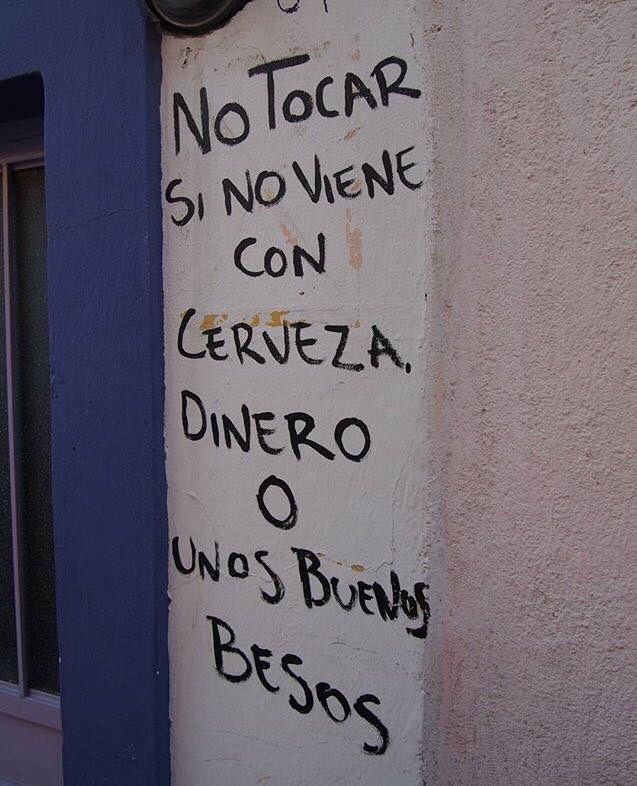 No TOCAR
Si NO ViENE
CON
CERVEZA.
DINERO
O
UNOS BUENOS
BESOS